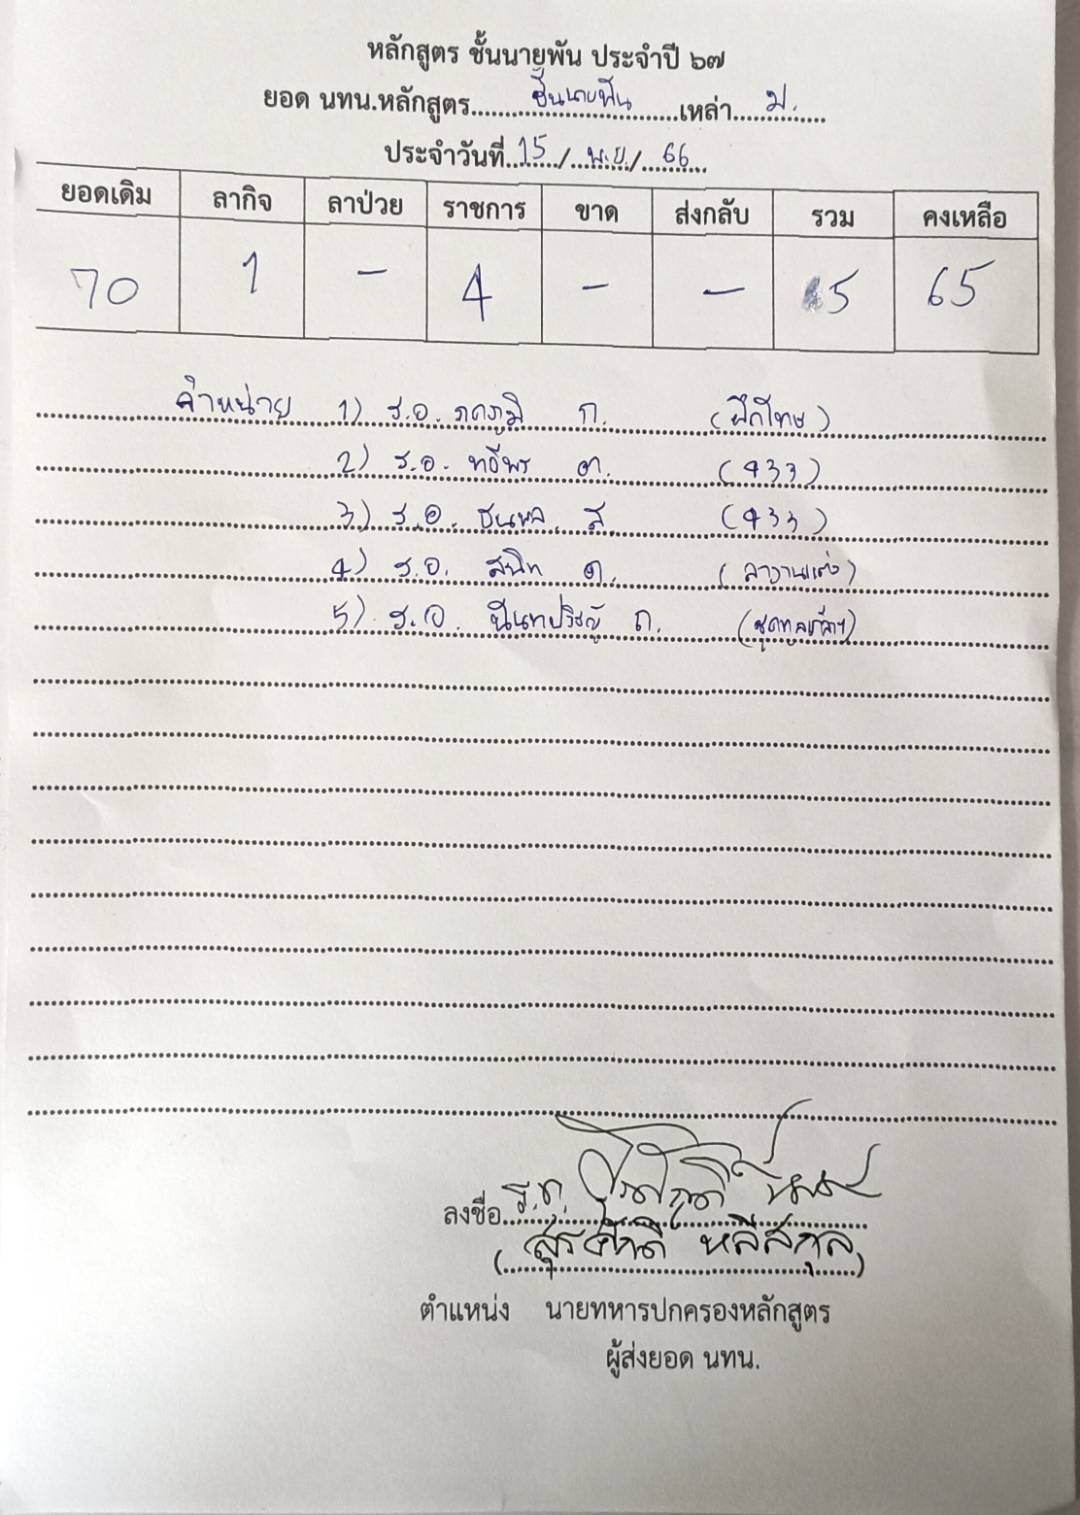 หลักสูตร ชั้นนายพัน ประจำปี ๖๗
ยอด นทน.หลักสูตร ชั้นนายพัน เหล่า ม.
ประจำวันที่ 15 / พ.ย. / 66
ยอดเดิม ลากิจ ลาป่วย ราชการ ขาด ส่งกลับ รวม คงเหลือ
70 1 - 4 - - 5 65
จำหน่าย 1) ร.อ. ภคภูมิ ก. (ฝึกโทษ)
2) ร.อ. ทธีพร ต. (433)
3) ร.อ. ธนพล ส. (433)
4) ร.อ. สนิท ด. (ลางานแต่ง)
5) ร.อ. ถ. (ชุดทูลเกล้าฯ)
ลงชื่อ
(สุรศักดิ์ หลีสกุล)
ตำแหน่ง นายทหารปกครองหลักสูตร
ผู้ส่งยอด นทน.